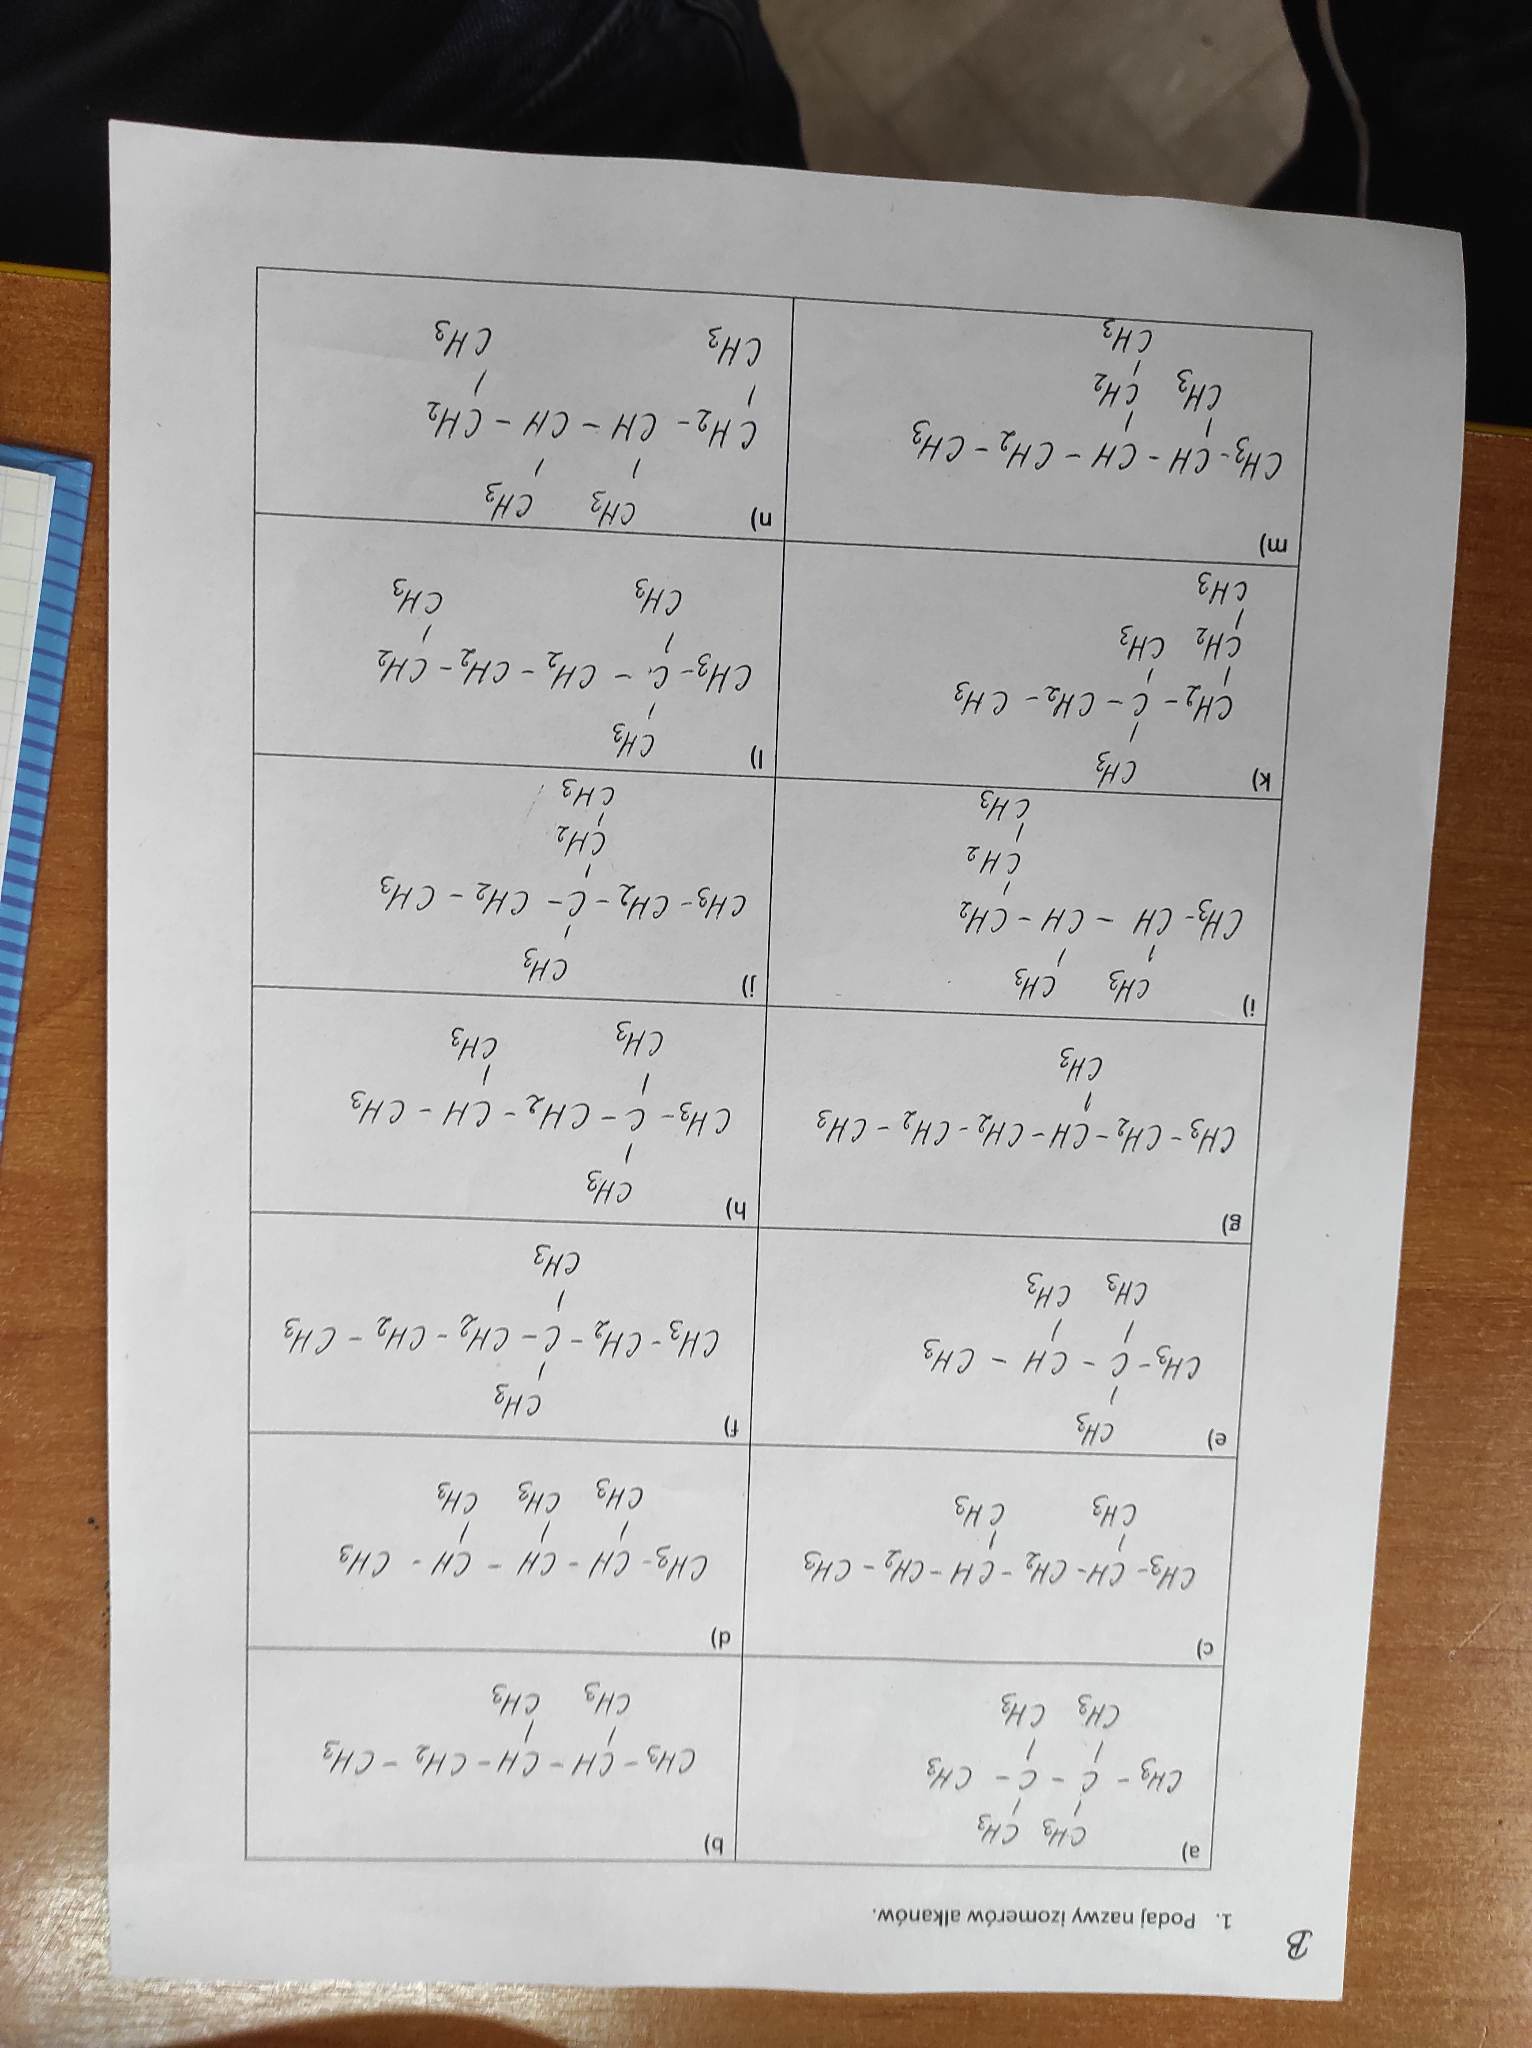 B
1. Podaj nazwy izomerów alkanów.
a)
CH3 CH3
CH3 - C - C - CH3
CH3 CH3
b)
CH3 - CH - CH - CH2 - CH3
CH3 CH3
c)
CH3 - CH - CH2 - CH - CH2 - CH3
CH3 CH3
d)
CH3 - CH - CH - CH - CH3
CH3 CH3 CH3
e)
CH3
CH3 - C - CH - CH3
CH3 CH3
f)
CH3
CH3 - CH2 - C - CH2 - CH2 - CH3
CH3
g)
CH3 - CH2 - CH - CH2 - CH2 - CH3
CH3
h)
CH3
CH3 - C - CH2 - CH - CH3
CH3 CH3
i)
CH3 CH3
CH3 - CH - CH - CH2
CH2
CH3
j)
CH3
CH3 - CH2 - C - CH2 - CH3
CH2
CH3
k)
CH3
CH2 - C - CH2 - CH3
CH2 CH3
CH3
l)
CH3
CH3 - C - CH2 - CH2 - CH2
CH3 CH3
m)
CH3 - CH - CH - CH2 - CH3
CH3 CH2
CH3
n)
CH3 CH3
CH2 - CH - CH - CH2
CH3 CH3